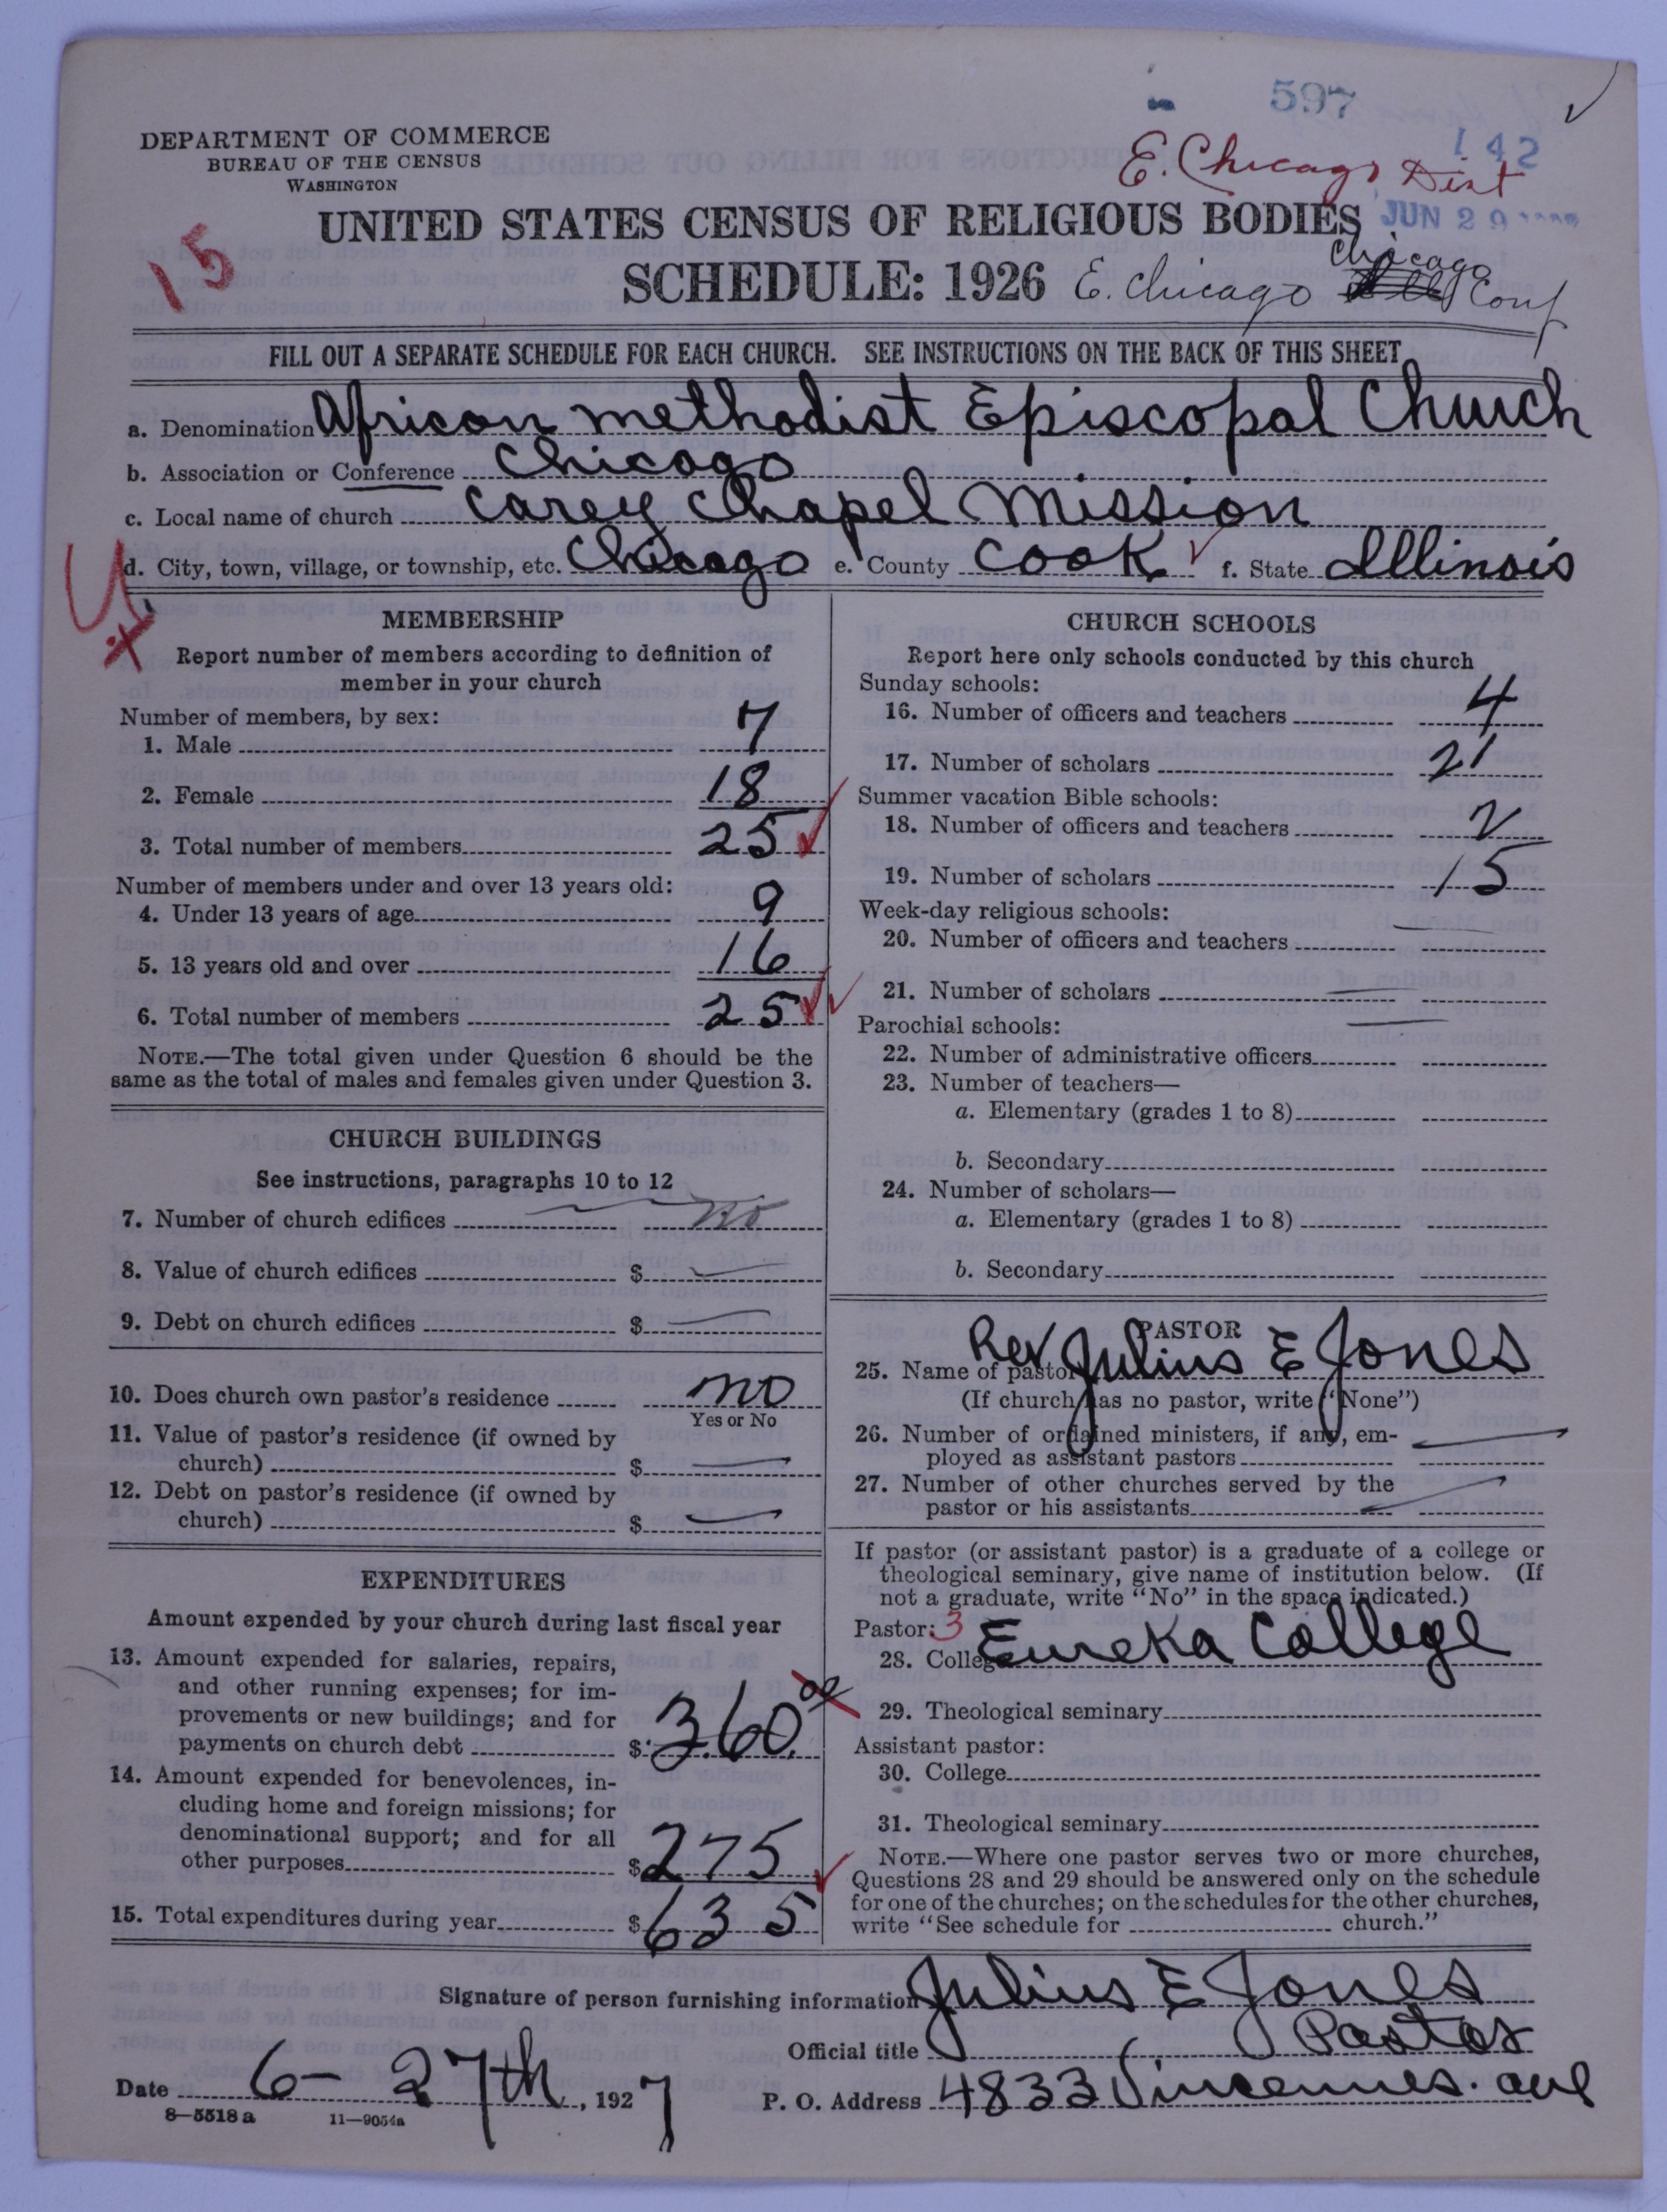 597
142
E. Chicago Dist
JUN 29
DEPARTMENT OF COMMERCE
BUREAU OF THE CENSUS
WASHINGTON
15
UNITED STATES CENSUS OF RELIGIOUS BODIES
SCHEDULE: 1926 E. Chicago Chicago Conf
FILL OUT A SEPARATE SCHEDULE FOR EACH CHURCH. SEE INSTRUCTIONS ON THE BACK OF THIS SHEET
a. Denomination African Methodist Episcopal Church
b. Association or Conference Chicago
c. Local name of church Carey Chapel Mission
d. City, town, village, or township, etc. Chicago e. County Cook f. State Illinois
MEMBERSHIP
Report number of members according to definition of
member in your church
Number of members, by sex:
1. Male 7
2. Female 18
3. Total number of members 25
Number of members under and over 13 years old:
4. Under 13 years of age 9
5. 13 years old and over 16
6. Total number of members 25
NOTE.—The total given under Question 6 should be the
same as the total of males and females given under Question 3.
CHURCH BUILDINGS
See instructions, paragraphs 10 to 12
7. Number of church edifices no
8. Value of church edifices $
9. Debt on church edifices $
10. Does church own pastor's residence no
Yes or No
11. Value of pastor's residence (if owned by
church) $
12. Debt on pastor's residence (if owned by
church) $
EXPENDITURES
Amount expended by your church during last fiscal year
13. Amount expended for salaries, repairs,
and other running expenses; for im-
provements or new buildings; and for
payments on church debt $ 360.00
14. Amount expended for benevolences, in-
cluding home and foreign missions; for
denominational support; and for all
other purposes $ 275
15. Total expenditures during year $ 635
CHURCH SCHOOLS
Report here only schools conducted by this church
Sunday schools:
16. Number of officers and teachers 4
17. Number of scholars 21
Summer vacation Bible schools:
18. Number of officers and teachers 2
19. Number of scholars 15
Week-day religious schools:
20. Number of officers and teachers
21. Number of scholars
Parochial schools:
22. Number of administrative officers
23. Number of teachers—
a. Elementary (grades 1 to 8)
b. Secondary
24. Number of scholars—
a. Elementary (grades 1 to 8)
b. Secondary
PASTOR
25. Name of pastor Rev Julius E Jones
(If church has no pastor, write "None")
26. Number of ordained ministers, if any, em-
ployed as assistant pastors
27. Number of other churches served by the
pastor or his assistants
If pastor (or assistant pastor) is a graduate of a college or
theological seminary, give name of institution below. (If
not a graduate, write "No" in the space indicated.)
Pastor: 3
28. College Eureka College
29. Theological seminary
Assistant pastor:
30. College
31. Theological seminary
NOTE.—Where one pastor serves two or more churches,
Questions 28 and 29 should be answered only on the schedule
for one of the churches; on the schedules for the other churches,
write "See schedule for church."
Signature of person furnishing information Julius E Jones
Official title Pastor
Date 6-27th, 1927 P. O. Address 4833 Vincennes. ave
8—5518 a 11—9054a